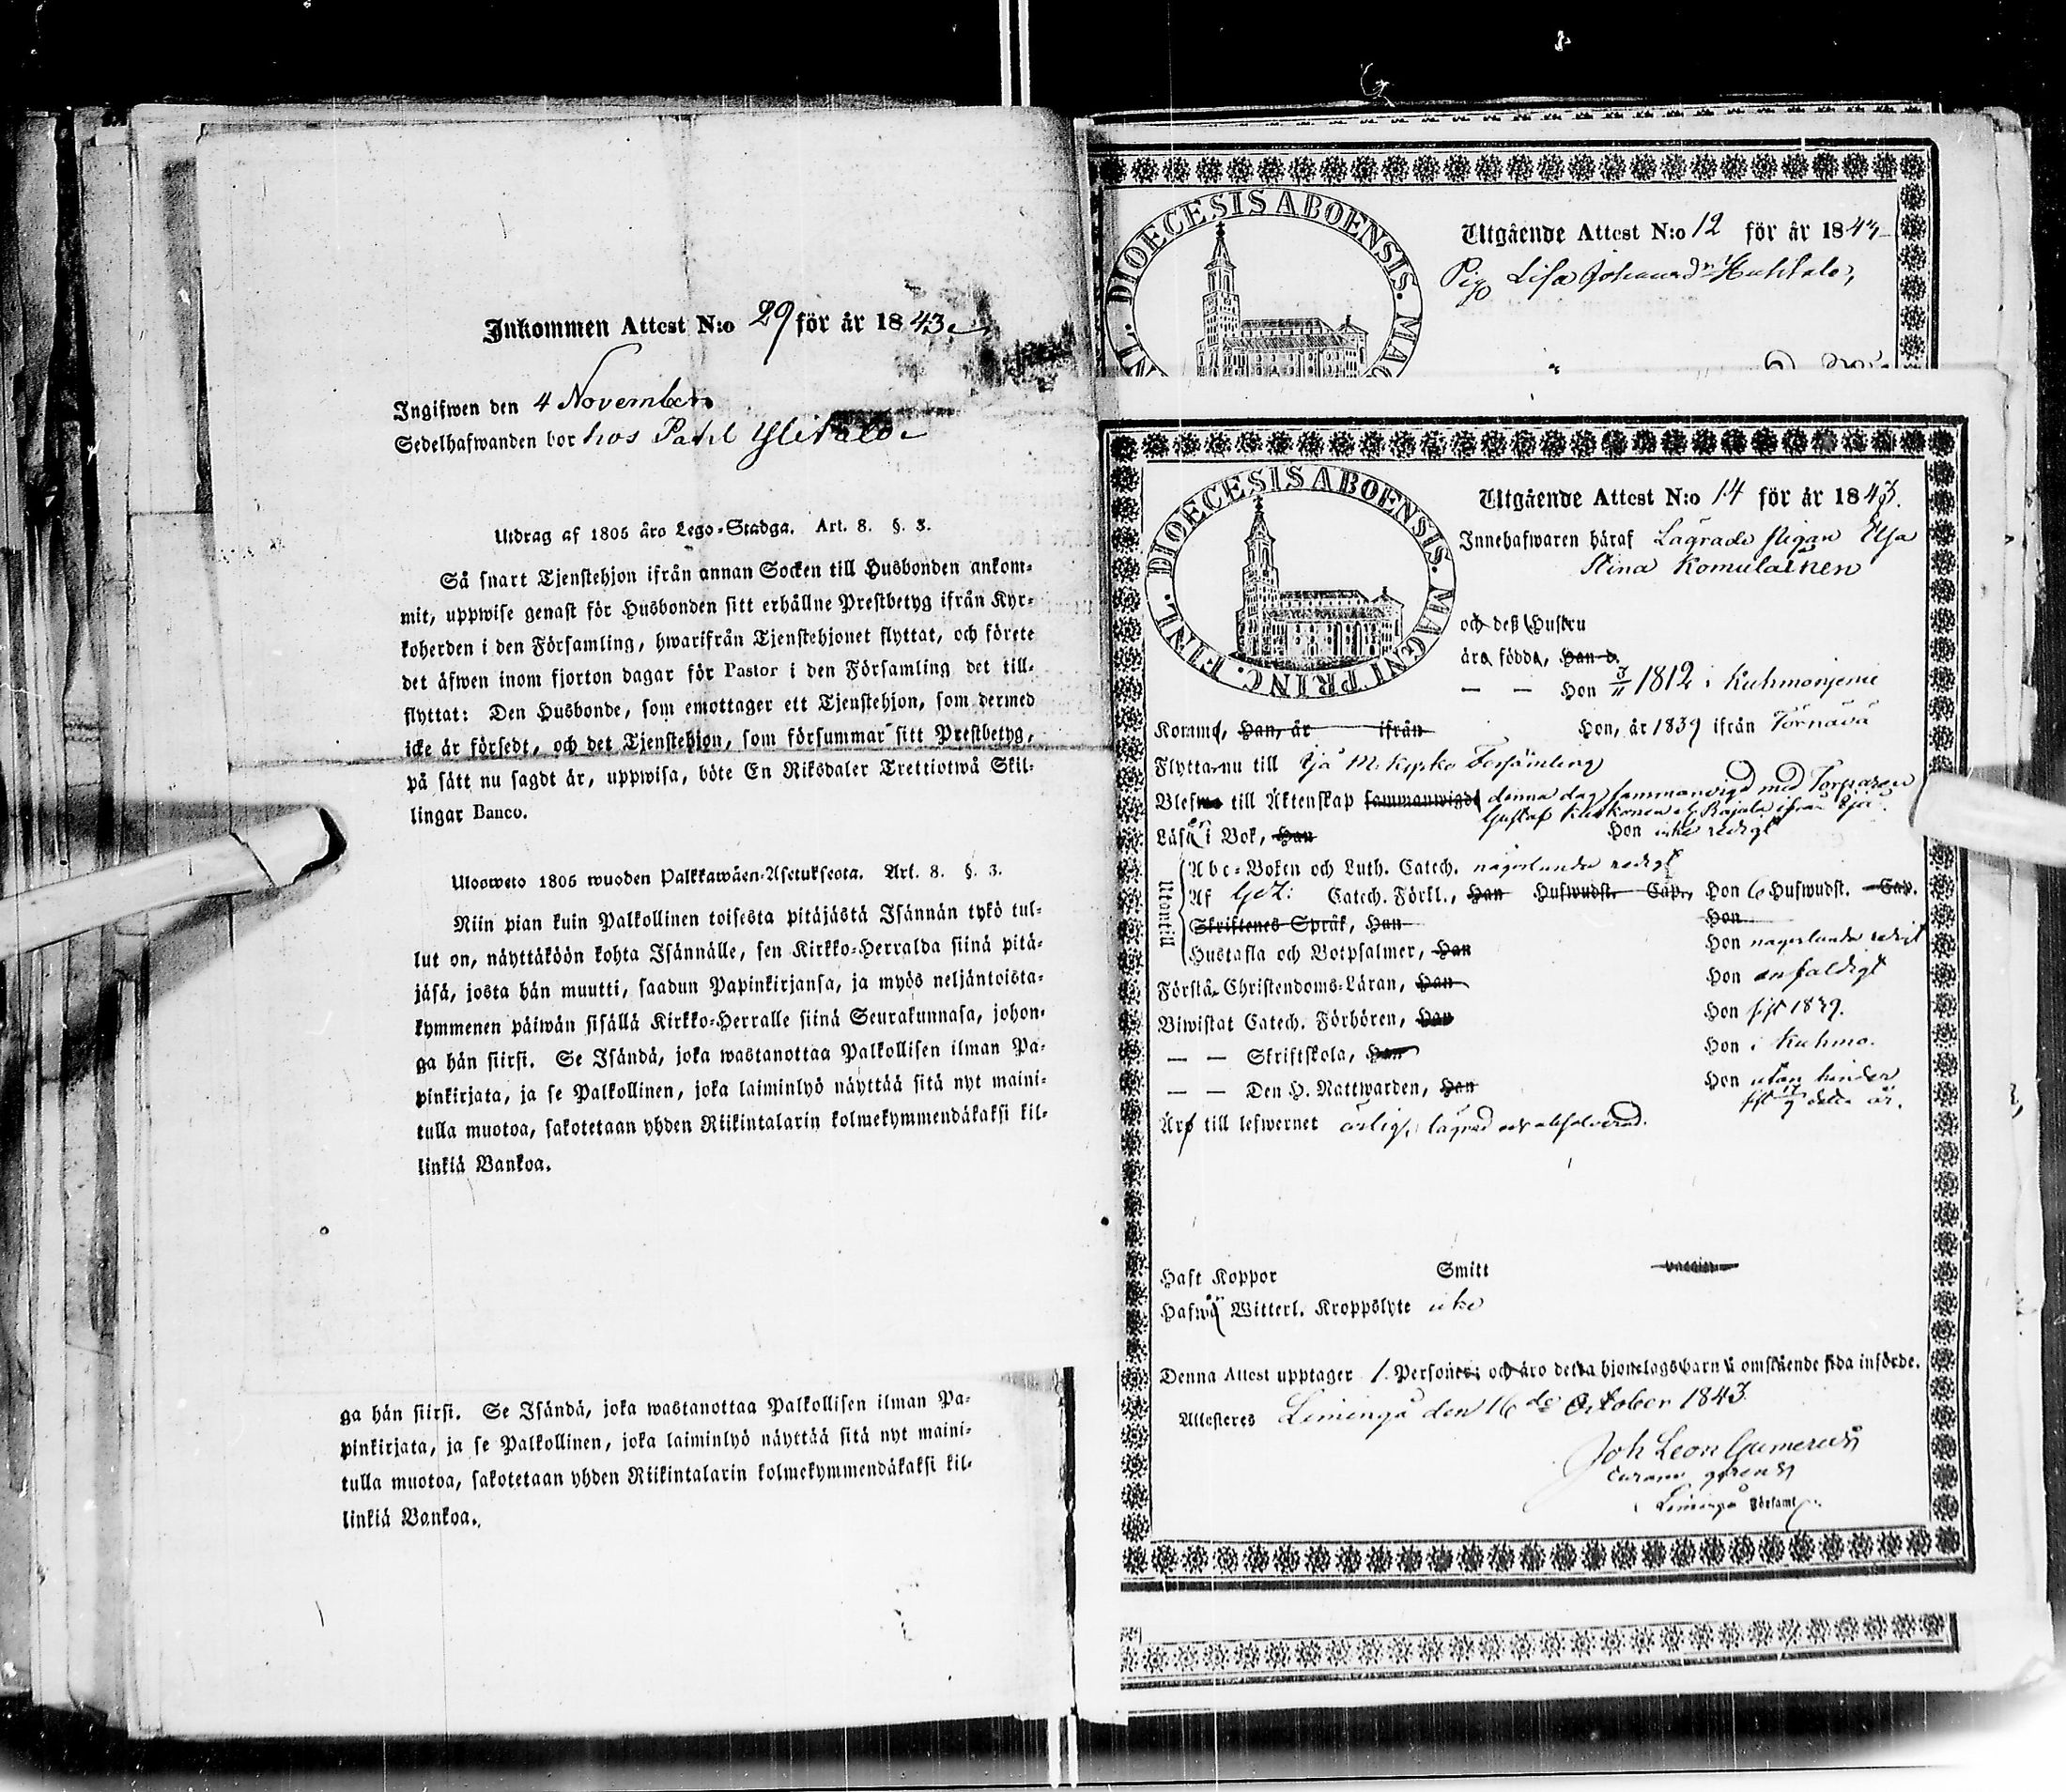 Inkommen Attest N:o 29 för år 1843
Ingifwen den 4 November
Sedelhafwanden bor hos Pahl Ylitalo
Utdrag af 1805 års Lego-Stadga. Art. 8. §. 3.
Så snart Tjenstehjon ifrån annan Socken till Husbonden ankom-
mit, uppwise genast för Husbonden sitt erhållne Prestbetyg ifrån Kyr-
koherden i den Församling, hwarifrån Tjenstehjonet flyttat, och förete
det äfwen inom fjorton dagar för Pastor i den Församling det till-
flyttat: Den Husbonde, som emottager ett Tjenstehjon, som dermed
icke är försedt, och det Tjenstehjon, som försummar sitt Prestbetyg,
på sätt nu sagdt är, uppwisa, böte En Riksdaler Trettiotwå Skil-
lingar Banco.
Ulosweto 1805 wuoden Palkkawäen-Asetuksesta. Art. 8. §. 3.
Niin pian kuin Palkollinen toisesta pitäjästä Isännän tykö tul-
lut on, näyttäköön kohta Isännälle, sen Kirkko-Herralda siinä pitä-
jäsä, josta hän muutti, saadun Papinkirjansa, ja myös neljäntoista-
kymmenen päiwän sisällä Kirkko-Herralle siinä Seurakunnasa, johon-
ga hän siirsi. Se Isändä, joka wastanottaa Palkollisen ilman Pa-
pinkirjata, ja se Palkollinen, joka laiminlyö näyttää sitä nyt maini-
tulla muotoa, sakotetaan yhden Riikintalarin kolmekymmendäkaksi kil-
linkiä Bankoa.
ga hän siirsi. Se Isändä, joka wastanottaa Palkollisen ilman Pa-
pinkirjata, ja se Palkollinen, joka laiminlyö näyttää sitä nyt maini-
tulla muotoa, sakotetaan yhden Riikintalarin kolmekymmendäkaksi kil-
linkiä Bankoa.
DIOECESIS ABOENSIS. MAG
Utgående Attest N:o 12 för år 184
Pig Lisa Johansdr Huhtala,
DIOECESIS ABOENSIS. MAGNI PRINC. FINL.
Utgående Attest N:o 14 för år 1843.
Innehafwaren häraf Lägrade pigan Elsa
Stina Komulainen
och deß Hustru
äro födda, Han d.
— — Hon 3/11 1812 i Kuhmoniemi
Komme, Han, år ifrån Hon, år 1839 ifrån Törnävä
Flytta nu till Ijå M. kyrko Församling
Blefwo till Äktenskap sammanwigde denna dag sammanvigd med Torparen
Gustaf Rajala ifrån Ijå.
Läsa i Bok, Han Hon icke redigt
Utantill
Abc-Boken och Luth. Catech. någorlunda redigt
Af Gez: Catech. Förkl., Han Hufwudst. Cap. Hon 6 Hufwudst. Cap.
Skriftenes Språk, Han Hon
Hustafla och Botpsalmer, Han Hon någorlunda redigt
Förstå Christendoms-Läran, Han Hon enfaldigt
Biwistat Catech. Förhören, Han Hon sist 1839.
— — Skriftskola, Han Hon i Kuhmo.
— — Den H. Nattwarden, Han Hon utan hinder
sist 17/9 detta år.
Äro till lefwernet ärlig, lägrad och absolverad.
Haft Koppor Smitt vaccin
Hafwa Witterl. Kroppslyte icke
Denna Attest upptager 1 Personer; och äro detta hjonelags barn å omstående sida införde.
Attesteres Limingå den 16de October 1843.
Joh Leon Gumerus
curam gerens
i Limingå Församl.